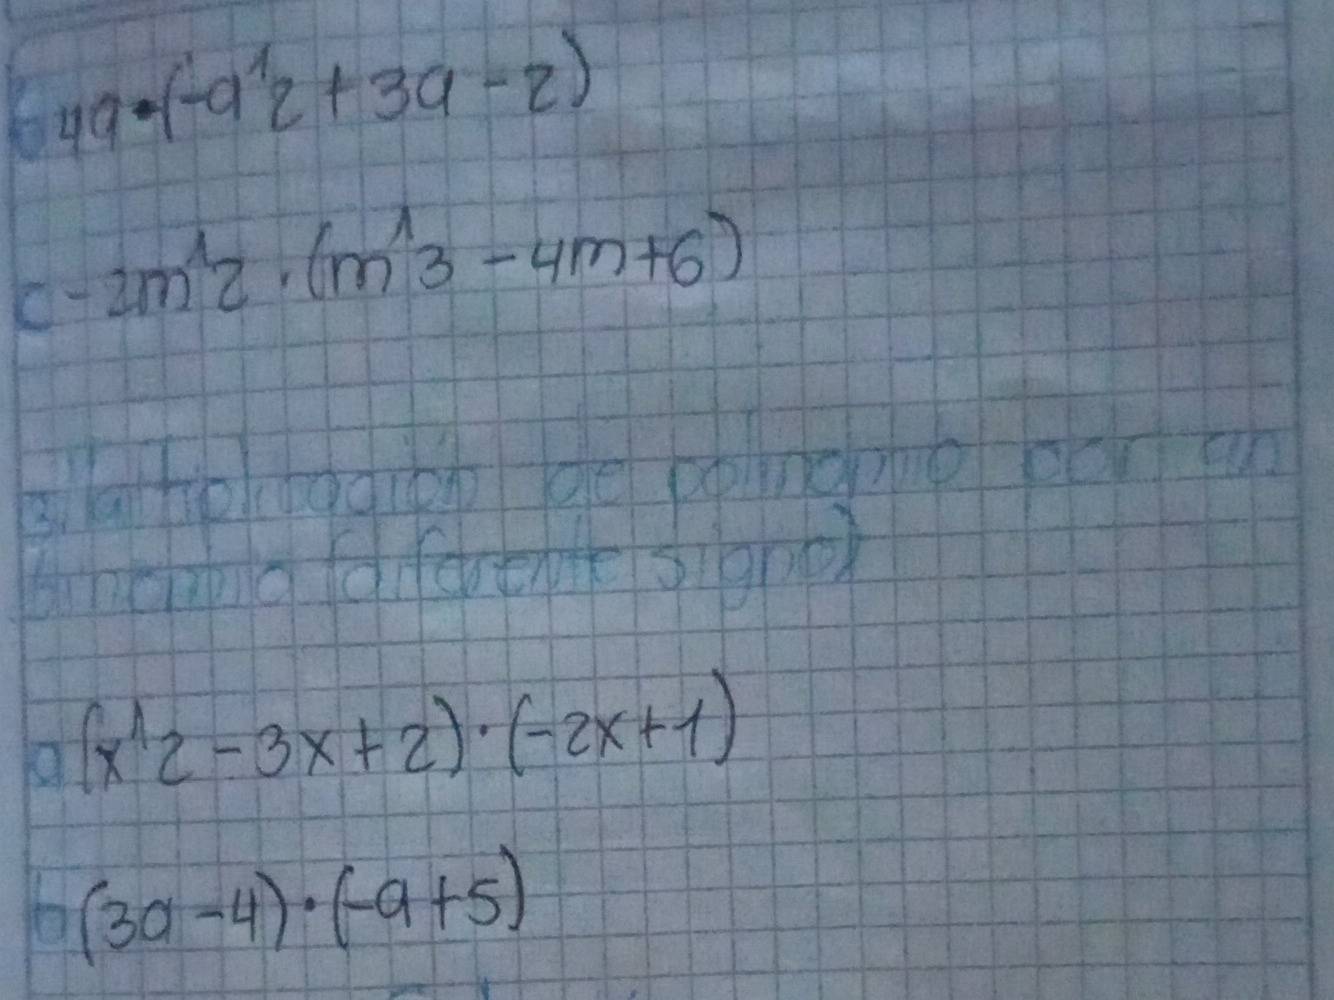 b 4a·(-a^2+3a-2)
c -2m^2·(m^3-4m+6)
3 de polinomio por un
binomio (diferente signo)
a (x^2-3x+2)·(-2x+1)
b (3a-4)·(-a+5)